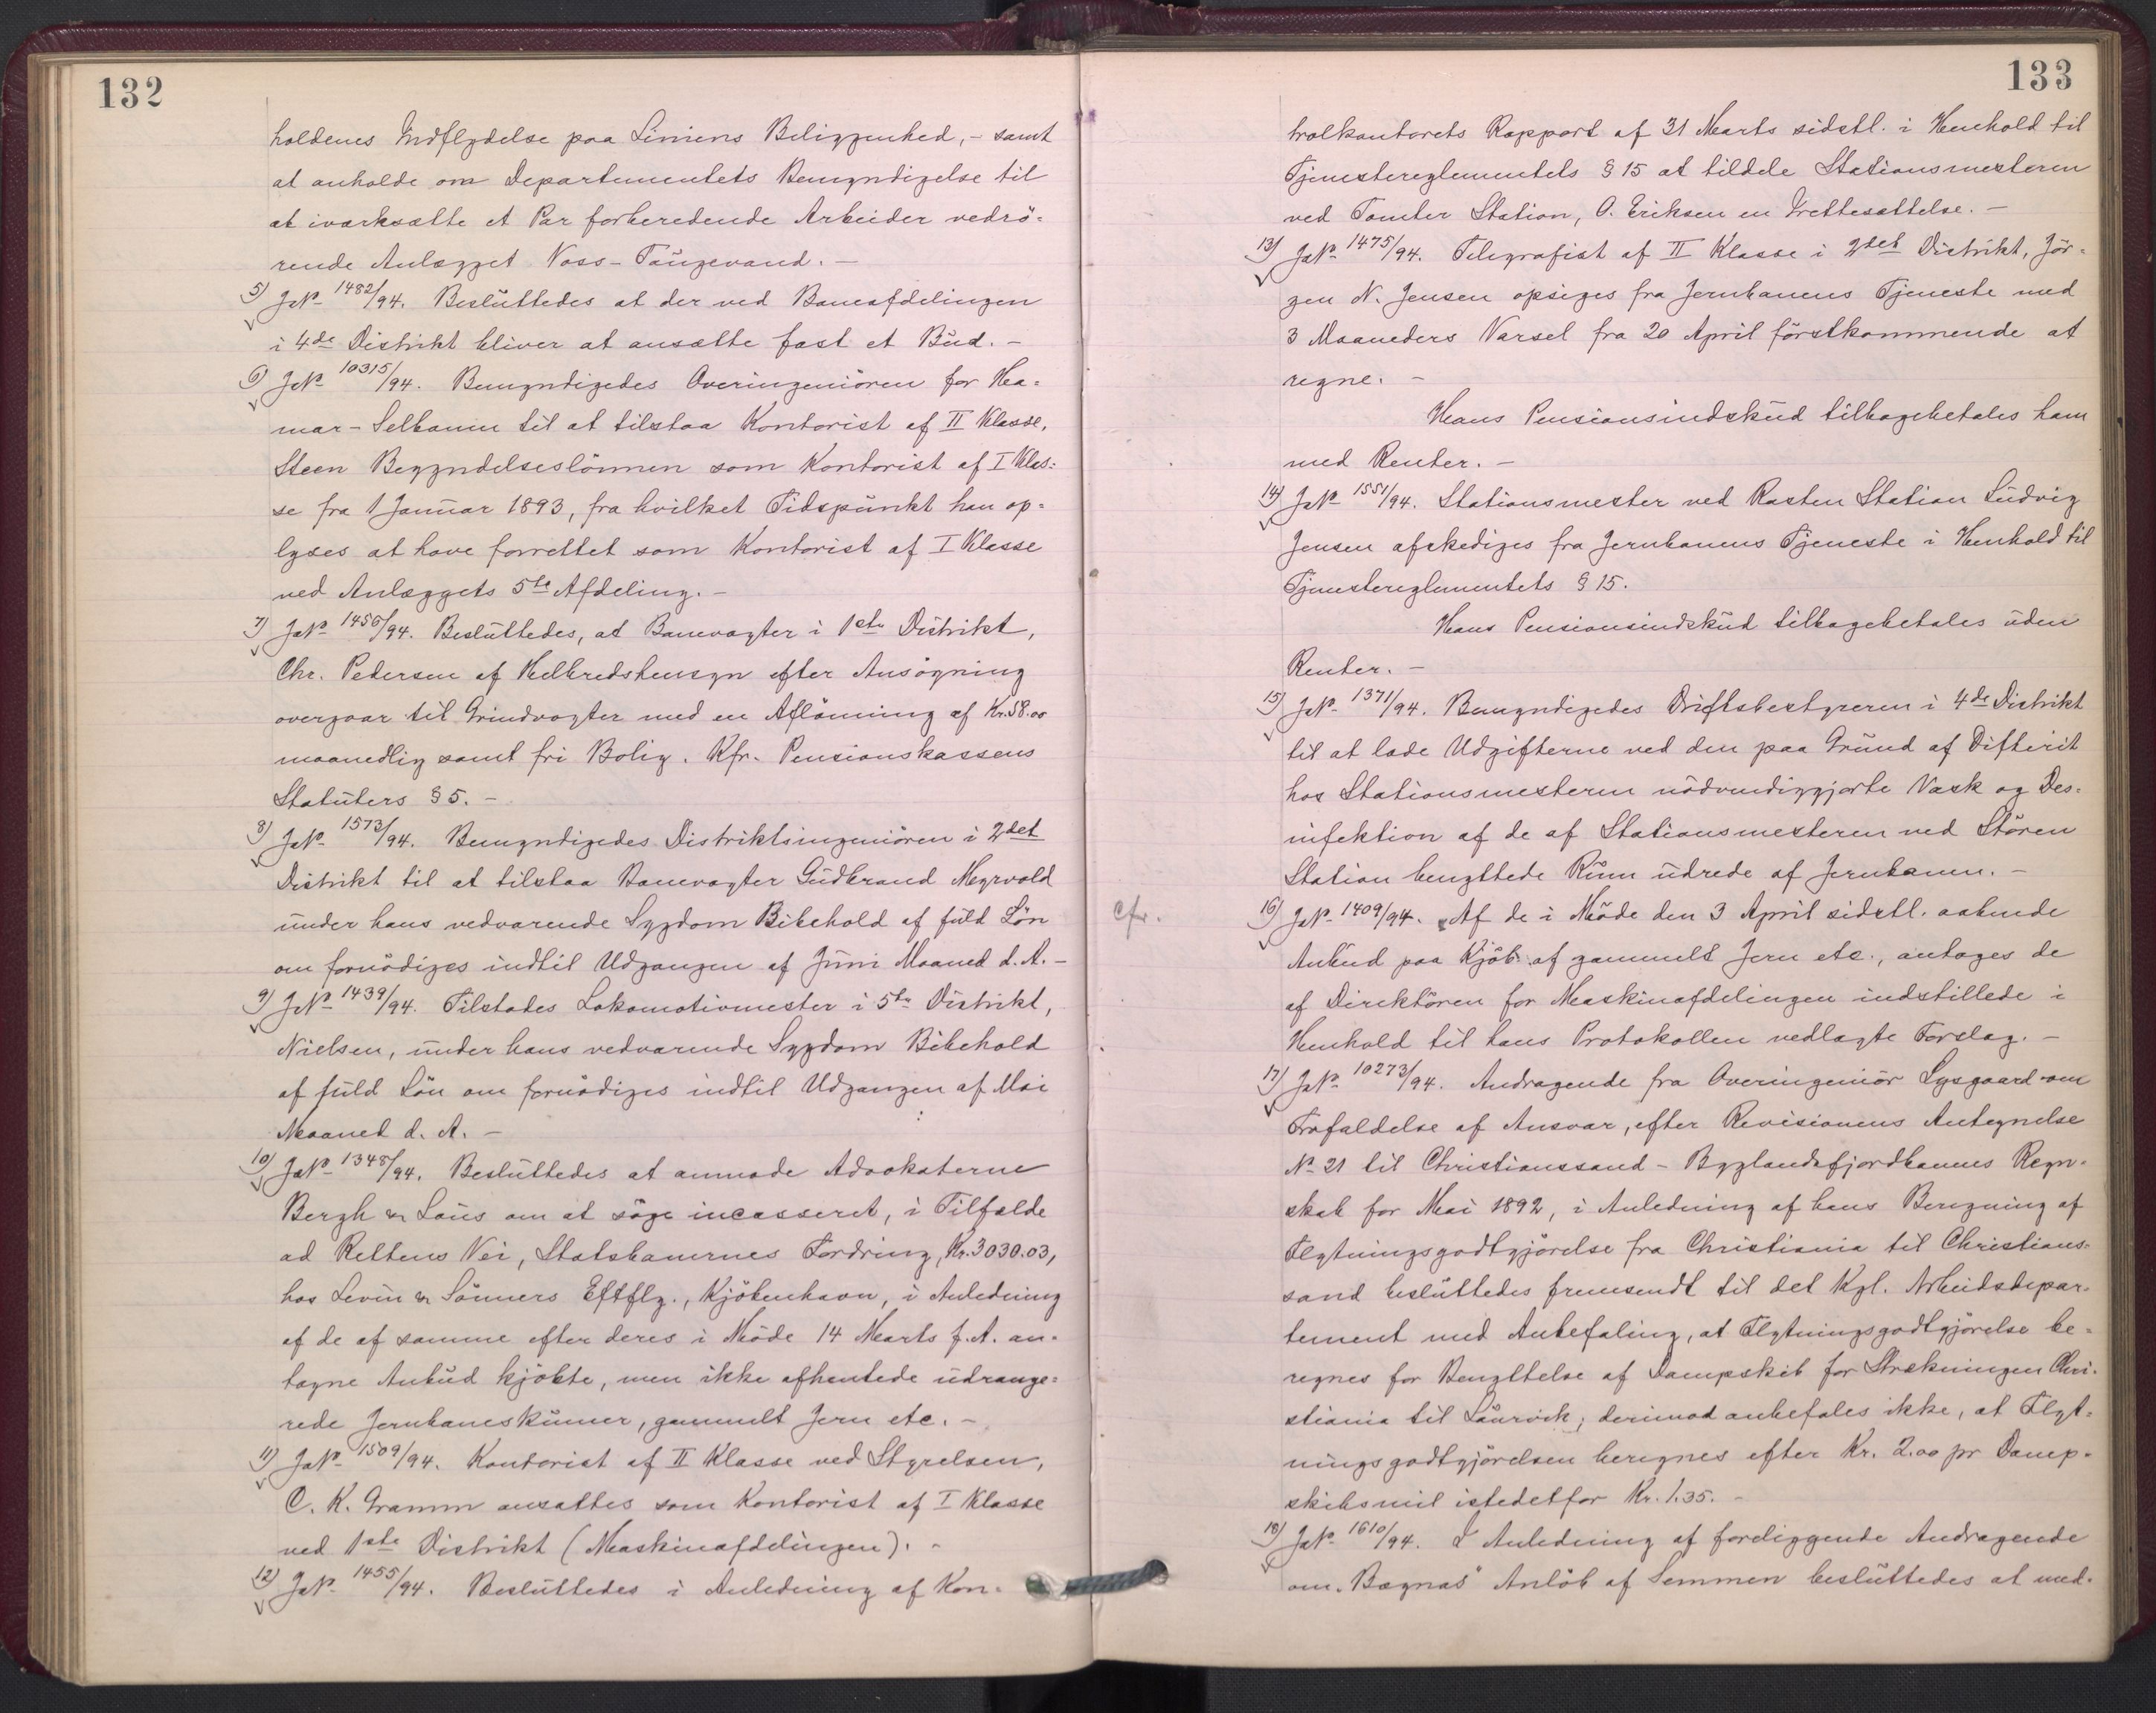 132
holdenes Indflydelse paa Liniens Beliggenhed, - samt
at anholde om Departementets Bemyndigelse til
at iværksætte et Par forberedende Arbeider vedrö=
rende Anlægget Voss-Taugevand. -
5) JN° 1482/94. Besluttedes at der ved Baneafdelingen
i 4de Distrikt bliver at ansætte fast et Bud. -
6) JN° 10315/94. Bemyndigedes Overingeniören for Ha=
mar-Selbanen til at tilstaa Kontorist af II Klasse,
Steen Begyndelseslönnen som Kontorist af I Klas=
se fra 1 Januar 1893, fra hvilket Tidspunkt han op=
lyses at have forrettet som Kontorist af I Klasse
ved Anlæggets 5te Afdeling. -
7) JN° 1456/94. Besluttedes, at Banevogter i 1ste Distrikt,
Chr. Pedersen af Helbredshensyn efter Ansögning
overgaar til Grindvogter med en Aflönning af Kr. 58.00
maanedlig samt fri Bolig. Kfr. Pensionskassens
Statuters § 5. -
8) JN° 1573/94. Bemyndigedes Distriktsingeniören i 2det
Distrikt til at tilstaa Banevogter Gudbrand Myrvold
under hans vedvarende Sygdom Bibehold af fuld Lön
om fornödiges indtil Udgangen af Juni Maaned d. A. -
9) JN° 1439/94. Tilstodes Lokomotivmester i 5te Distrikt,
Nielsen, under hans vedvarende Sygdom Bibehold
af fuld Lön om fornödiges indtil Udgangen af Mai
Maaned d. A. -
10) JN° 1348/94. Besluttedes at anmode Advokaterne
Bergh & Lous om at söge incasseret, i Tilfælde
ad Rettens Vei, Statsbanernes Fordring, Kr. 3030.03,
hos Levin & Sönners Eftflg., Kjöbenhavn, i Anledning
af de af samme efter deres i Möde 14 Marts f. A. an=
tagne Anbud kjöbte, men ikke afhentede udrange=
rede Jernbaneskinner, gammelt Jern etc. -
11) JN° 1509/94. Kontorist af II Klasse ved Styrelsen,
C. K. Gramm ansattes som Kontorist af I Klasse
ved 1ste Distrikt (Maskinafdelingen). -
12) JN° 1455/94. Besluttedes i Anledning af Kon=
133
trolkontorets Rapport af 31 Marts sidstl. i Henhold til
Tjenestereglementets § 15 at tildele Stationsmesteren
ved Tomter Station, O. Eriksen en Irettesættelse. -
13) JN° 1475/94. Telegrafist af II Klasse i 2det Distrikt, Jör=
gen N. Jensen opsiges fra Jernbanens Tjeneste med
3 Maaneders Varsel fra 20 April förstkommende at
regne. -
Hans Pensionsindskud tilbagebetales ham
med Renter. -
14) JN° 1551/94. Stationsmester ved Rasten Station Ludvig
Jensen afskediges fra Jernbanens Tjeneste i Henhold til
Tjenestereglementets § 15.
Hans Pensionsindskud tilbagebetales uden
Renter. -
15) JN° 1371/94. Bemyndigedes Driftsbestyreren i 4de Distrikt
til at lade Udgifterne ved den paa Grund af Difterit
hos Stationsmesteren nödvendiggjorte Vask og Des=
infektion af de af Stationsmesteren ved Stören
Station benyttede Rum udrede af Jernbanen. -
cfr. 16) JN° 1409/94. Af de i Möde den 3 April sidstl. aabnede
Anbud paa Kjöb af gammelt Jern etc., antoges de
af Direktören for Maskinafdelingen indstillede i
Henhold til hans Protokollen vedlagte Forslag. -
17) JN° 10273/94. Andragende fra Overingeniör Lysgaard om
Frafaldelse af Ansvar, efter Revisionens Antegnelse
N° 21 til Christianssand-Byglandsfjordbanens Regn=
skab for Mai 1892, i Anledning af hans Beregning af
Flytningsgodtgjörelse fra Christiania til Christians=
sand besluttedes fremsendt til det Kgl. Arbeidsdepar=
tement med Anbefaling, at Flytningsgodtgjörelse be=
regnes for Benyttelse af Dampskib for Strekningen Chri=
stiania til Laurvik, derimod anbefales ikke, at Flyt=
ningsgodtgjörelsen beregnes efter Kr. 2.00 pr Damp=
skibsmil istedetfor Kr. 1.35. -
18) JN° 1610/94. I Anledning af foreliggende Andragende
om „Bægnas" Anlöb af Semmen besluttedes at med=